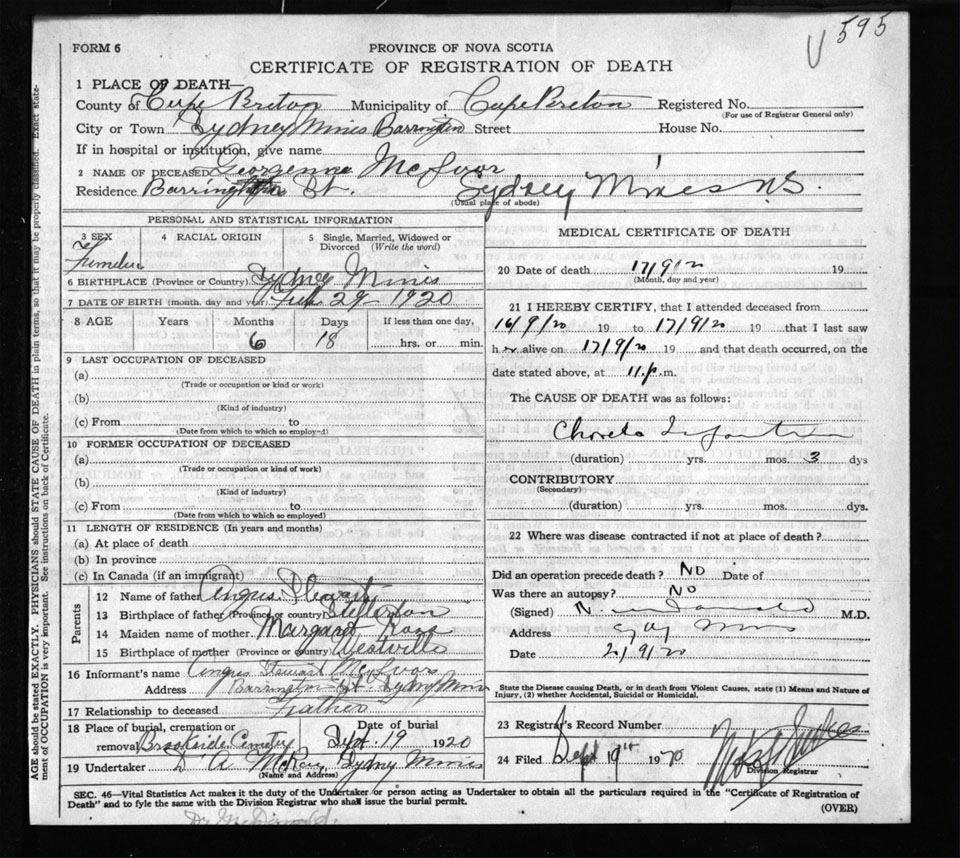 595
FORM 6
PROVINCE OF NOVA SCOTIA
CERTIFICATE OF REGISTRATION OF DEATH
1 PLACE OF DEATH—
County of Cape Breton Municipality of Cape Breton Registered No.
(For use of Registrar General only)
City or Town Sydney Mines Barrington Street House No.
If in hospital or institution, give name
2 NAME OF DECEASED Georgenna McIvor
Residence Barrington St. Sydney Mines N.S.
(Usual place of abode)
PERSONAL AND STATISTICAL INFORMATION
3 SEX
4 RACIAL ORIGIN
5 Single, Married, Widowed or Divorced (Write the word)
6 BIRTHPLACE (Province or Country) Sydney Mines
7 DATE OF BIRTH (month, day and year) Feb 29 - 1920
8 AGE Years Months Days If less than one day,
6 18 hrs. or min.
9 LAST OCCUPATION OF DECEASED
(a)
(Trade or occupation or kind or work)
(b)
(Kind of industry)
(c) From to
(Date from which to which so employed)
10 FORMER OCCUPATION OF DECEASED
(a)
(Trade or occupation or kind of work)
(b)
(Kind of industry)
(c) From to
(Date from which to which so employed)
11 LENGTH OF RESIDENCE (In years and months)
(a) At place of death
(b) In province
(c) In Canada (if an immigrant)
Parents
12 Name of father Angus Stewart
13 Birthplace of father (Province or country) Stellerton
14 Maiden name of mother Margaret Rose
15 Birthplace of mother (Province or country) Westville
16 Informant's name Angus Stewart McIvor
Address Barrington St. Sydney Mines
17 Relationship to deceased Father
18 Place of burial, cremation or Date of burial
removal Brookside Cemetry Sept 19 1920
19 Undertaker D A McRay, Sydney Mines
(Name and Address)
MEDICAL CERTIFICATE OF DEATH
20 Date of death 17/9/20 19
(Month, day and year)
21 I HEREBY CERTIFY, that I attended deceased from
16/9/20 19 to 17/9/20 19 that I last saw
h er alive on 17/9/20 19 and that death occurred, on the
date stated above, at 11.p.m.
The CAUSE OF DEATH was as follows:
(duration) yrs. mos. 3 dys
CONTRIBUTORY
(Secondary)
(duration) yrs. mos. dys.
22 Where was disease contracted if not at place of death?
Did an operation precede death? NO Date of
Was there an autopsy? NO
(Signed) M.D.
Address Syd Mines
Date 20/9/20
State the Disease causing Death, or in death from Violent Causes, state (1) Means and Nature of Injury, (2) whether Accidental, Suicidal or Homicidal.
23 Registrar's Record Number
24 Filed Sept 19th 1920
Division Registrar
SEC. 46—Vital Statistics Act makes it the duty of the Undertaker or person acting as Undertaker to obtain all the particulars required in the "Certificate of Registration of
Death" and to fyle the same with the Division Registrar who shall issue the burial permit. (OVER)
Dr McDonald.
AGE should be stated EXACTLY. PHYSICIANS should STATE CAUSE OF DEATH in plain terms, so that it may be properly classified. Exact statement of OCCUPATION is very important. See instructions on back of Certificate.